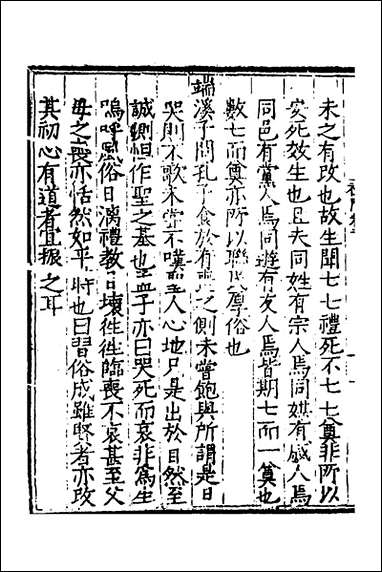 未之有改也故生閏七七禮死不七七奠非所以
安死效生也且夫同姓有宗人焉同媾有戚人焉
同邑有黨人焉同遊有友人焉皆期七而一奠也
數七而奠亦所以聯民厚俗也
端溪子問孔子食於有喪之側未嘗飽與所謂是日
哭則不歌未常不嘆聖人心地只是出於自然至
誠惻怛作聖之基也孟子亦曰哭死而哀非為生
嗚呼風俗日漓禮教日壞徃徃臨喪不哀甚至父
母之喪亦恬然如平時也曰習俗成雖賢者亦改
其初心有道者宜振之耳